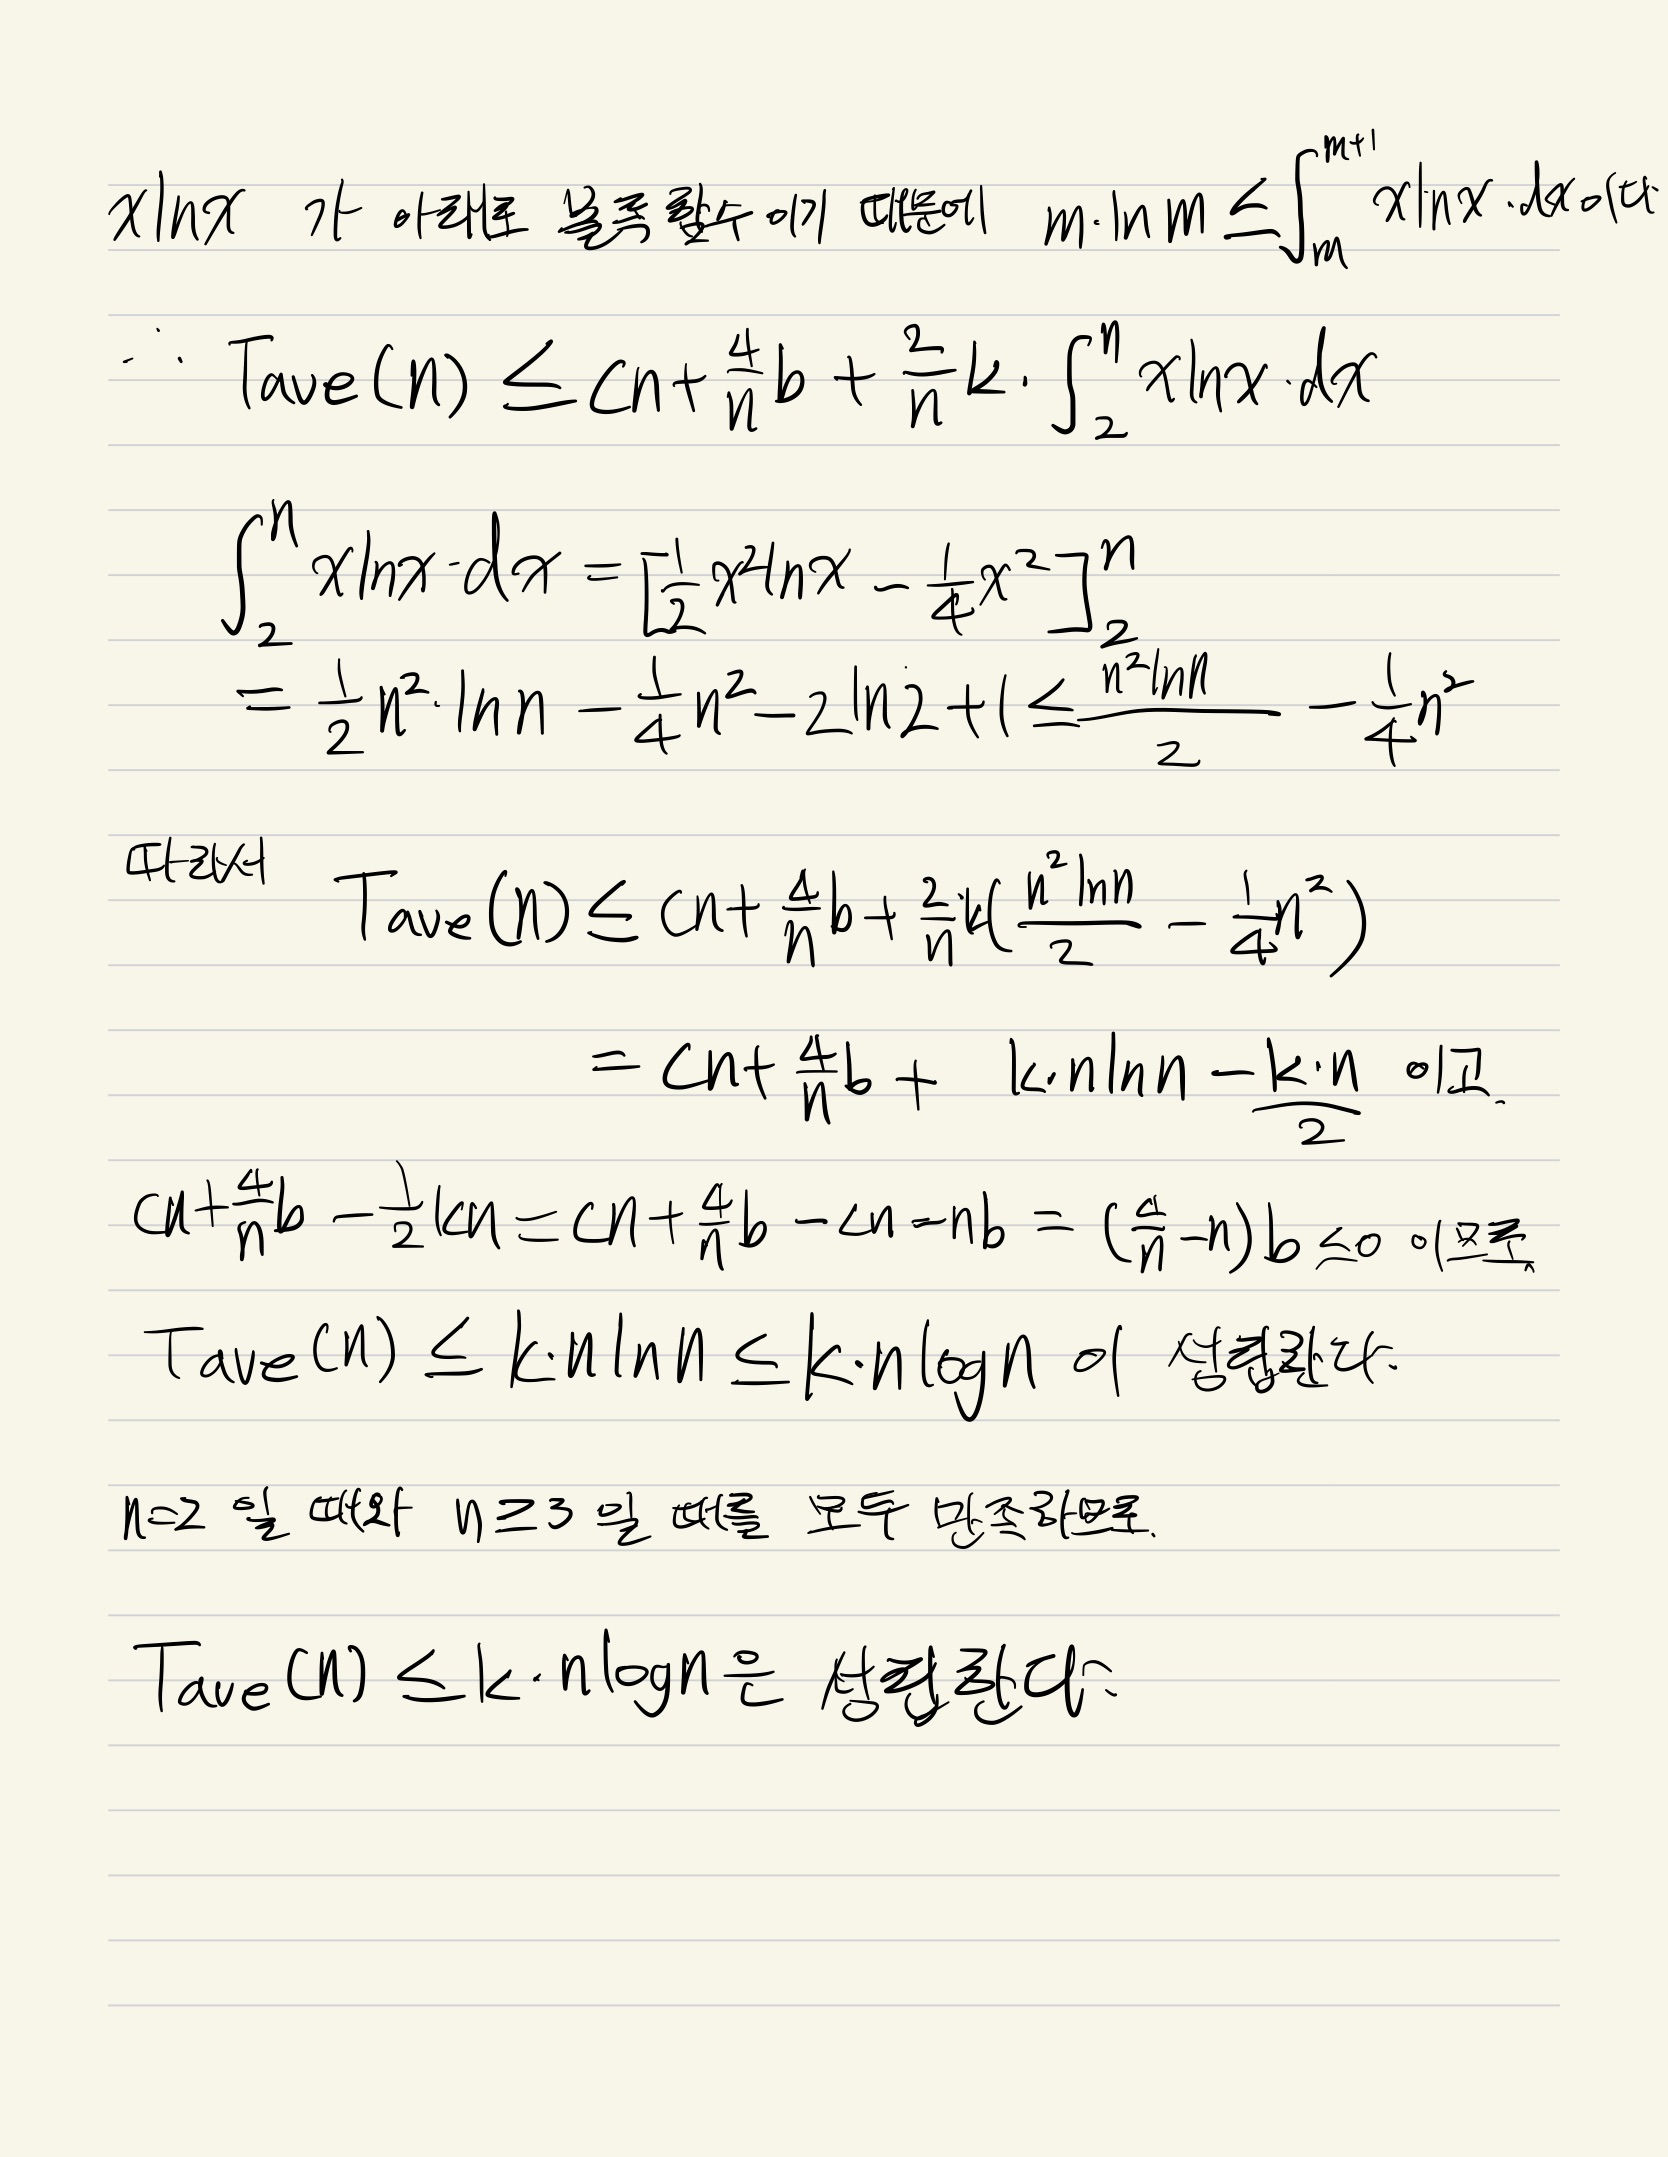 xlnx 가 아래로 볼록함수이기 때문에 m·ln m ≤ ∫_m^{m+1} xlnx·dx이다.
∴ Tave(n) ≤ cn + 4/n b + 2/n k · ∫_2^n xlnx·dx
∫_2^n xlnx·dx = [1/2 x²lnx − 1/4 x²]_2^n
= 1/2 n²·ln n − 1/4 n² − 2ln2 + 1 ≤ n²lnn/2 − 1/4 n²
따라서 Tave(n) ≤ cn + 4/n b + 2/n k(n²lnn/2 − 1/4 n²)
= cn + 4/n b + k·nlnn − k·n/2 이고.
cn + 4/n b − 1/2 kn = cn + 4/n b − cn − nb = (4/n − n)b ≤ 0 이므로,
Tave(n) ≤ k·nlnn ≤ k·nlogn 이 성립한다.
n=2 일 때와 n≥3 일 때를 모두 만족하므로.
Tave(n) ≤ k·nlogn은 성립한다.